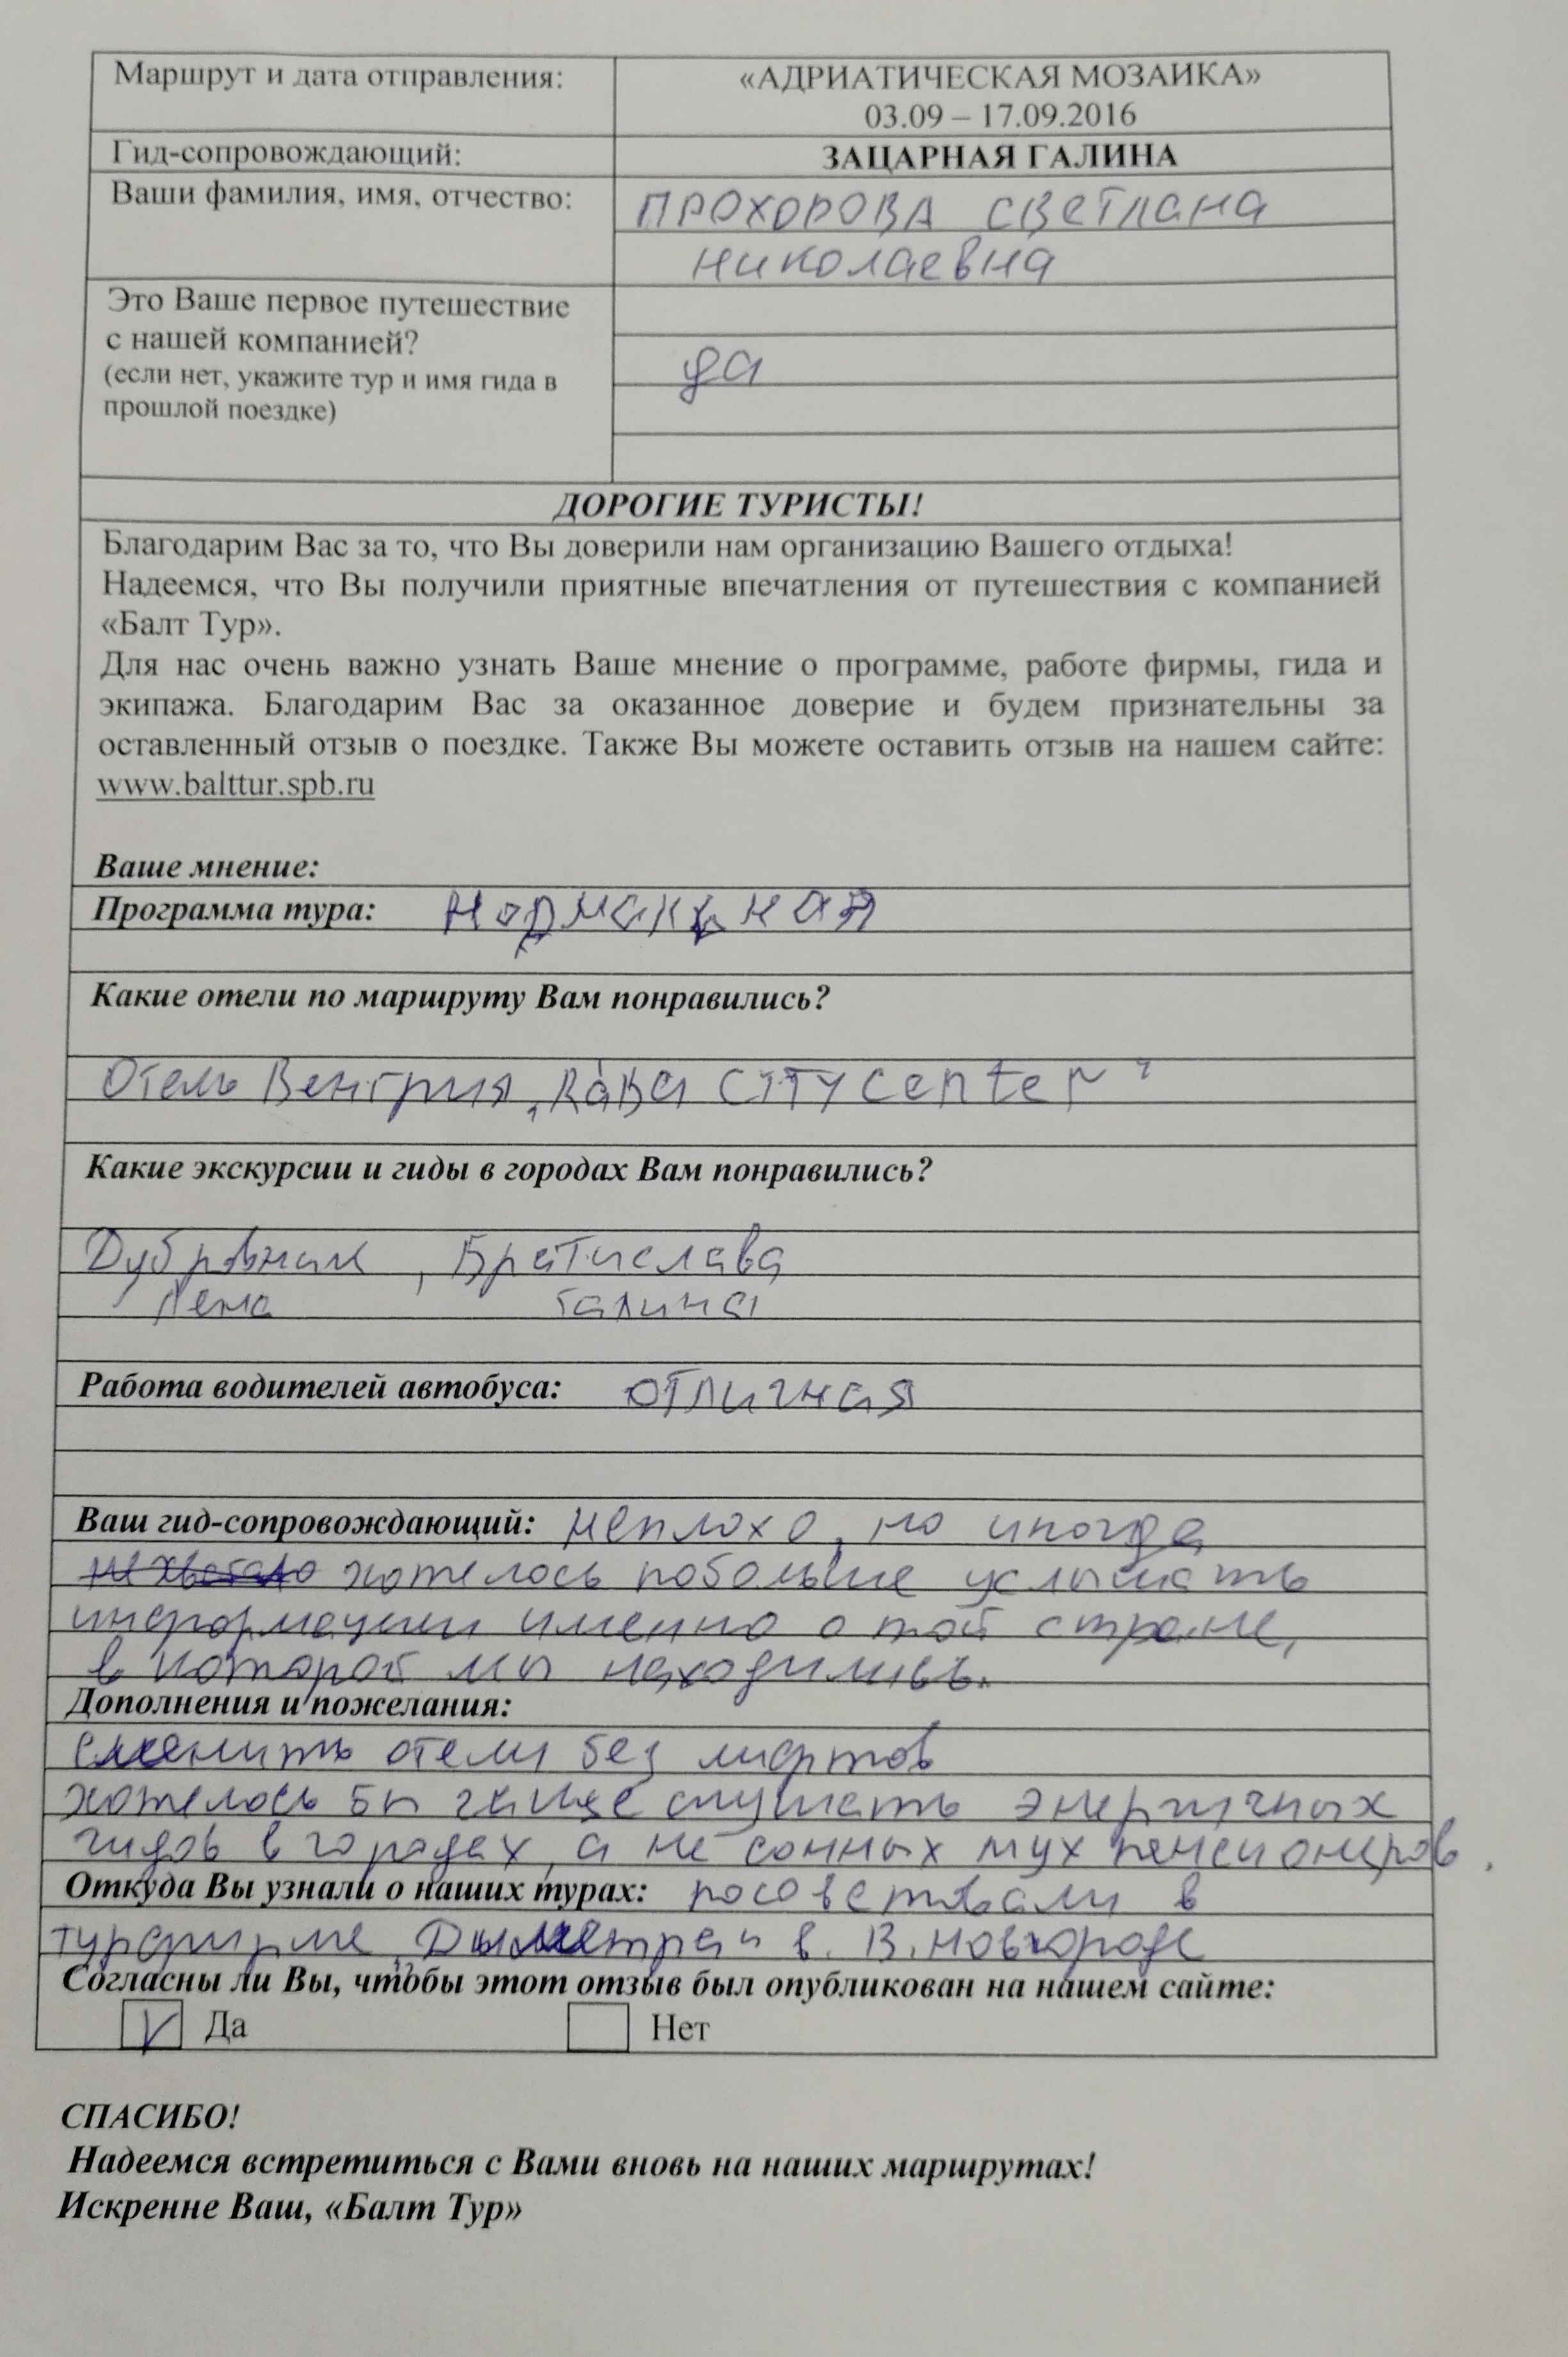 Маршрут и дата отправления: «АДРИАТИЧЕСКАЯ МОЗАИКА»
03.09 – 17.09.2016
Гид-сопровождающий: ЗАЦАРНАЯ ГАЛИНА
Ваши фамилия, имя, отчество: ПРОХОРОВА СВЕТЛАНА
НИКОЛАЕВНА
Это Ваше первое путешествие
с нашей компанией?
(если нет, укажите тур и имя гида в
прошлой поездке)
да
ДОРОГИЕ ТУРИСТЫ!
Благодарим Вас за то, что Вы доверили нам организацию Вашего отдыха!
Надеемся, что Вы получили приятные впечатления от путешествия с компанией
«Балт Тур».
Для нас очень важно узнать Ваше мнение о программе, работе фирмы, гида и
экипажа. Благодарим Вас за оказанное доверие и будем признательны за
оставленный отзыв о поездке. Также Вы можете оставить отзыв на нашем сайте:
www.balttur.spb.ru
Ваше мнение:
Программа тура: Нормальная
Какие отели по маршруту Вам понравились?
Отель Венгрия „RáBa CITY Center"
Какие экскурсии и гиды в городах Вам понравились?
Дубровник, Братислава
Лена Галина
Работа водителей автобуса: отличная
Ваш гид-сопровождающий: неплохо, но иногда
не хватало хотелось побольше услышать
информации именно о той стране,
в которой мы находились.
Дополнения и пожелания:
сменить отели без лифтов
хотелось бы чаще слушать энергичных
гидов в городах, а не сонных мух пенсионеров.
Откуда Вы узнали о наших турах: посоветовали в
турфирме в В. Новгороде
Согласны ли Вы, чтобы этот отзыв был опубликован на нашем сайте:
Да Нет
СПАСИБО!
Надеемся встретиться с Вами вновь на наших маршрутах!
Искренне Ваш, «Балт Тур»